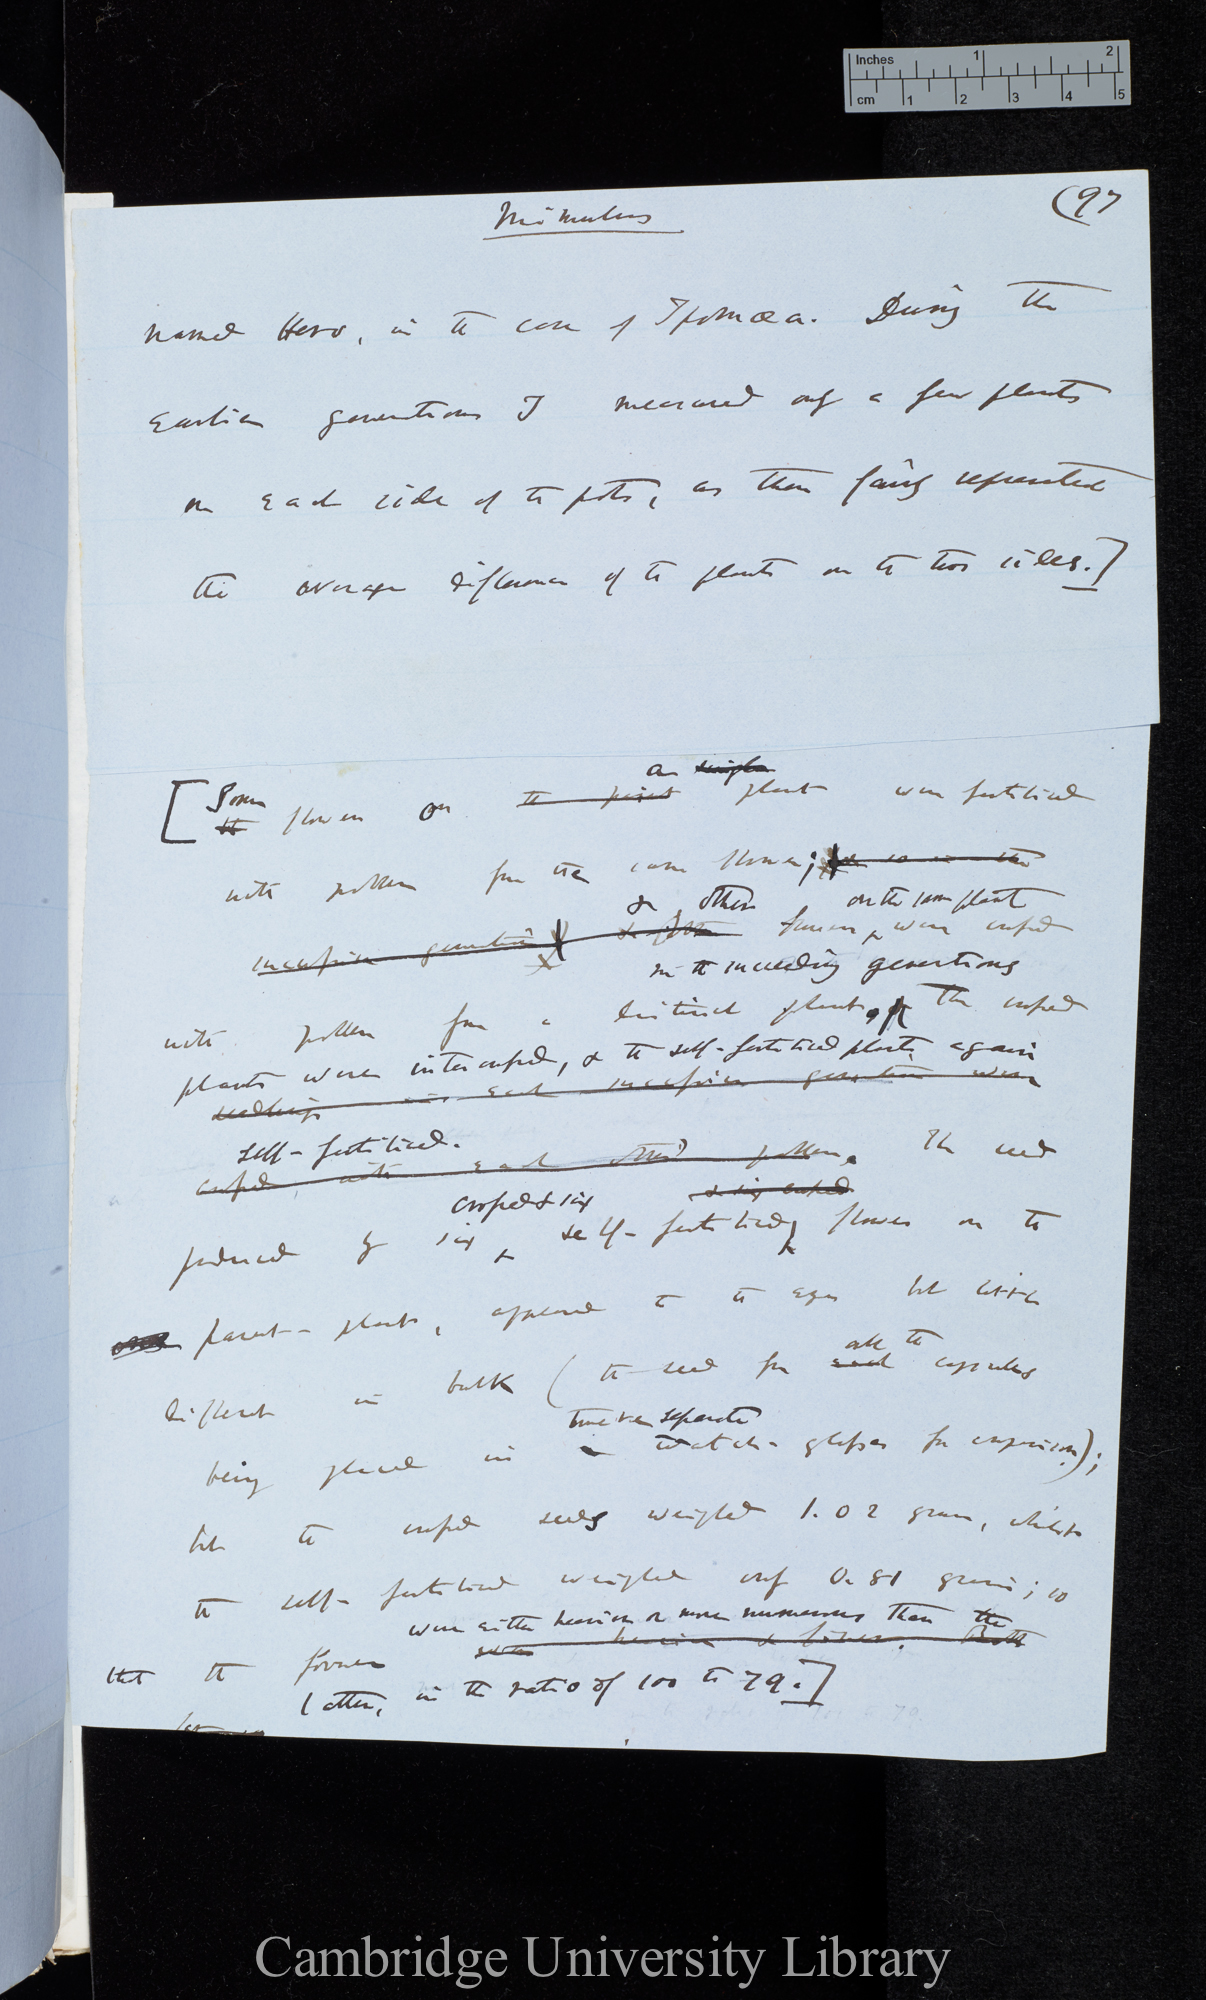 Inches 1 2
cm 1 2 3 4 5
Mimulus
(97
named Hero, in the case of Ipomœa. During the
earlier generations I measured only a few plants
on each side of the pots, as then fairly represented
the average difference of the plants on the two sides.]
a single
[Some
the flowers on the parent plant were fertilised
with pollen from the same flower; & so in the
& others on the same plant
succeeding generations & other flowers were crossed
in the succeeding generations
with pollen from a distinct plant. The crossed
plants were intercrossed, & the self-fertilised plants again
seedlings in each succeeding generation were
self-fertilised.
crossed with each other's pollen. The seed
crossed & six & six crossed
produced by six self-fertilised flowers on the
parent-plants, appeared to the eye but little
all the
different in bulk (the seed from each capsules
twelve separate
being placed in watch-glasses for comparison);
but the crossed seeds weighed 1.02 grain, whilst
the self-fertilised weighed only 0.81 grain; so
were either heavier or more numerous than the
that the former were heavier & finer. Both
latter, in the ratio of 100 to 79.]
Cambridge University Library